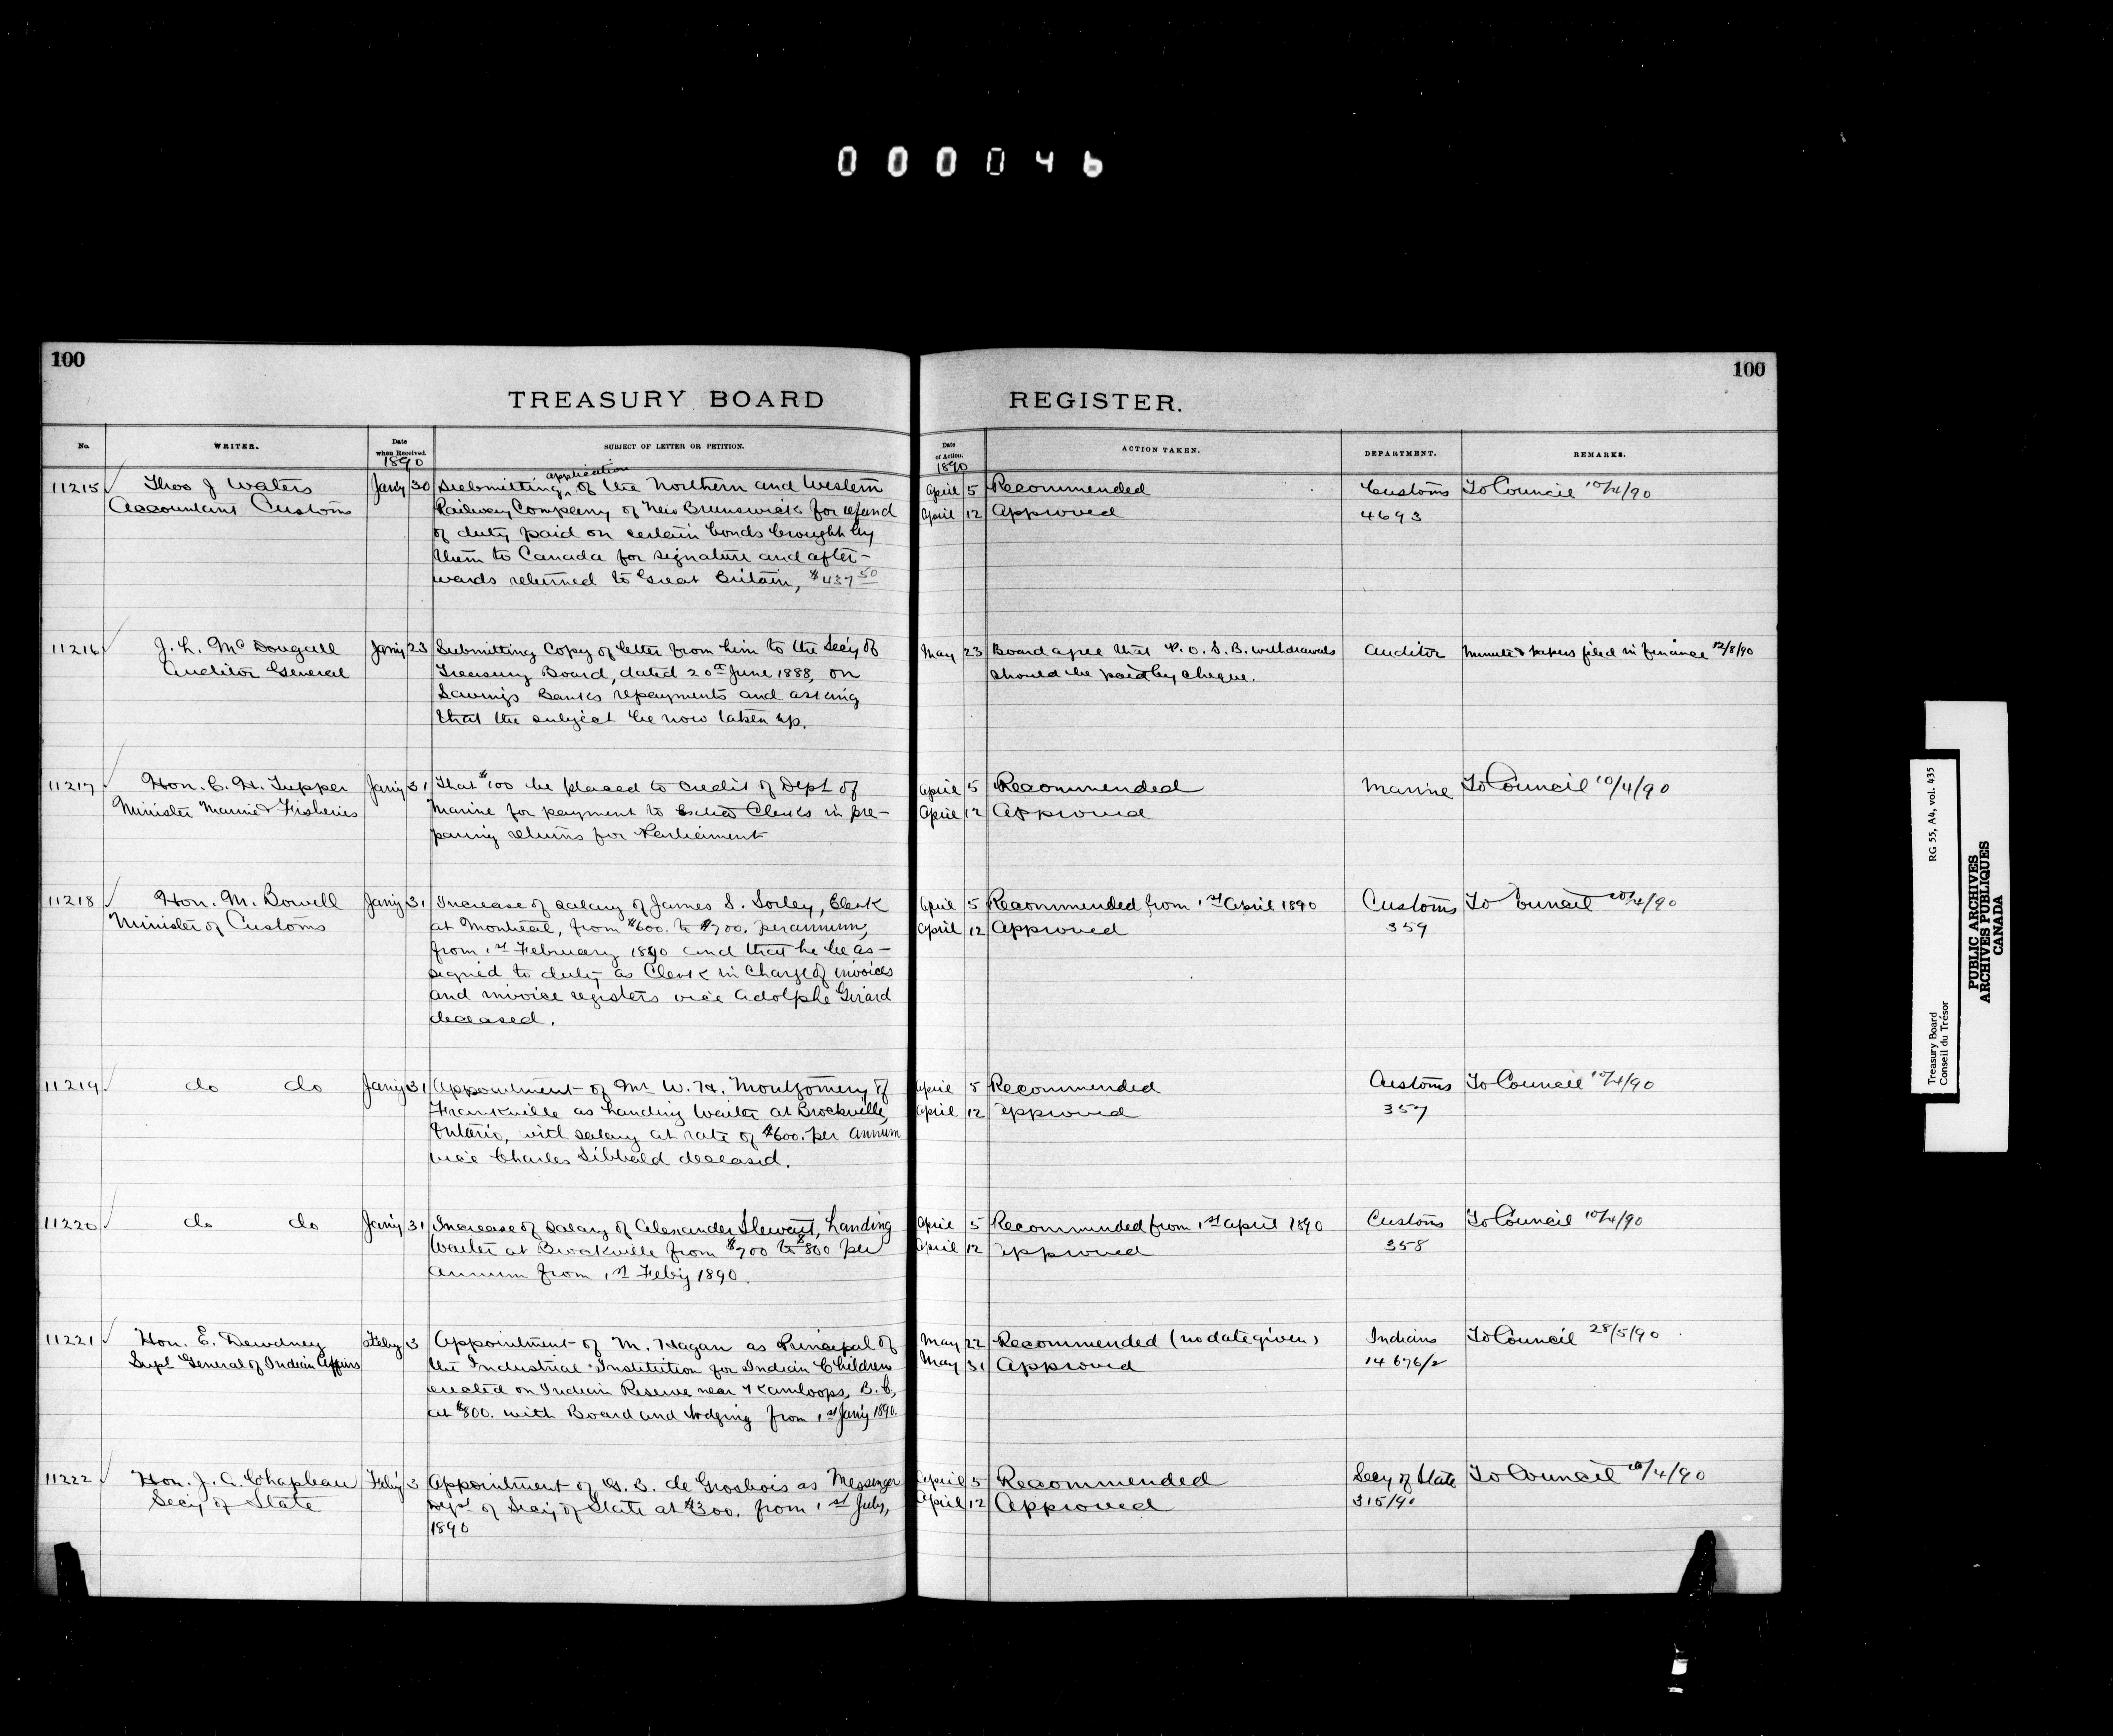 000046
100
100
TREASURY BOARD REGISTER.
No. WRITER. Date when Received. SUBJECT OF LETTER OR PETITION. Date of Action. ACTION TAKEN. DEPARTMENT. REMARKS.
1890 1890
11215 Thos J Waters Jan'y 30 Submitting application of the Northern and Western April 5 Recommended Customs To Council 10/4/90
Accountant Customs Railway Company of New Brunswick for refund April 12 Approved 4693
of duty paid on certain bonds brought by
them to Canada for signature and after-
wards returned to Great Britain, $437 50
11216 J. L. McDougall Jan'y 23 Submitting Copy of letter from him to the Sec'y of May 23 Board agree that P.O.S.B. withdrawals Auditor Minute & papers filed in finance 12/8/90
Auditor General Treasury Board, dated 20th June 1888, on should be paid by cheque.
Savings Banks repayments and asking
that the subject be now taken up.
11217 Hon. C. H. Tupper Jan'y 31 That $100 be placed to credit of Dept of April 5 Recommended Marine To Council 10/4/90
Minister Marine & Fisheries Marine for payment to Extra Clerks in pre- April 12 Approved
paring returns for Parliament
11218 Hon. M. Bowell Jan'y 31 Increase of salary of James S. Sorley, Clerk April 5 Recommended from 1st April 1890 Customs To Council 10/4/90
Minister of Customs at Montreal, from $600. to $700. per annum, April 12 Approved 359
from 1st February 1890 and that he be as-
signed to duty as Clerk in Charge of invoices
and invoice registers vice Adolphe Girard
deceased.
11219 do do Jan'y 31 Appointment of Mr W. H. Montgomery of April 5 Recommended Customs To Council 10/4/90
Frankville as Landing Waiter at Brockville, April 12 Approved 357
Ontario, with salary at rate of $600. per annum
vice Charles Sibbald deceased.
11220 do do Jan'y 31 Increase of salary of Alexander Stewart, Landing April 5 Recommended from 1st April 1890 Customs To Council 10/4/90
Waiter at Brockville from $700 to $800 per April 12 Approved 358
annum from 1st Feb'y 1890.
11221 Hon. E. Dewdney Feby 3 Appointment of M. Hagan as Principal of May 22 Recommended (no date given) Indians To Council 28/5/90
Supt General of Indian Affairs the Industrial Institution for Indian Children May 31 Approved 14676/2
erected on Indian Reserve near Kamloops, B.C.,
at $800. with Board and lodging from 1st Jan'y 1890.
11222 Hon. J. A. Chapleau Feb'y 3 Appointment of G. B. de Grosbois as Messenger April 5 Recommended Secy of State To Council 10/4/90
Sec'y of State Dept of Sec'y of State at $300. from 1st July, April 12 Approved 315/90
1890
Treasury Board RG 55, A4, vol. 435
Conseil du Trésor
PUBLIC ARCHIVES
ARCHIVES PUBLIQUES
CANADA